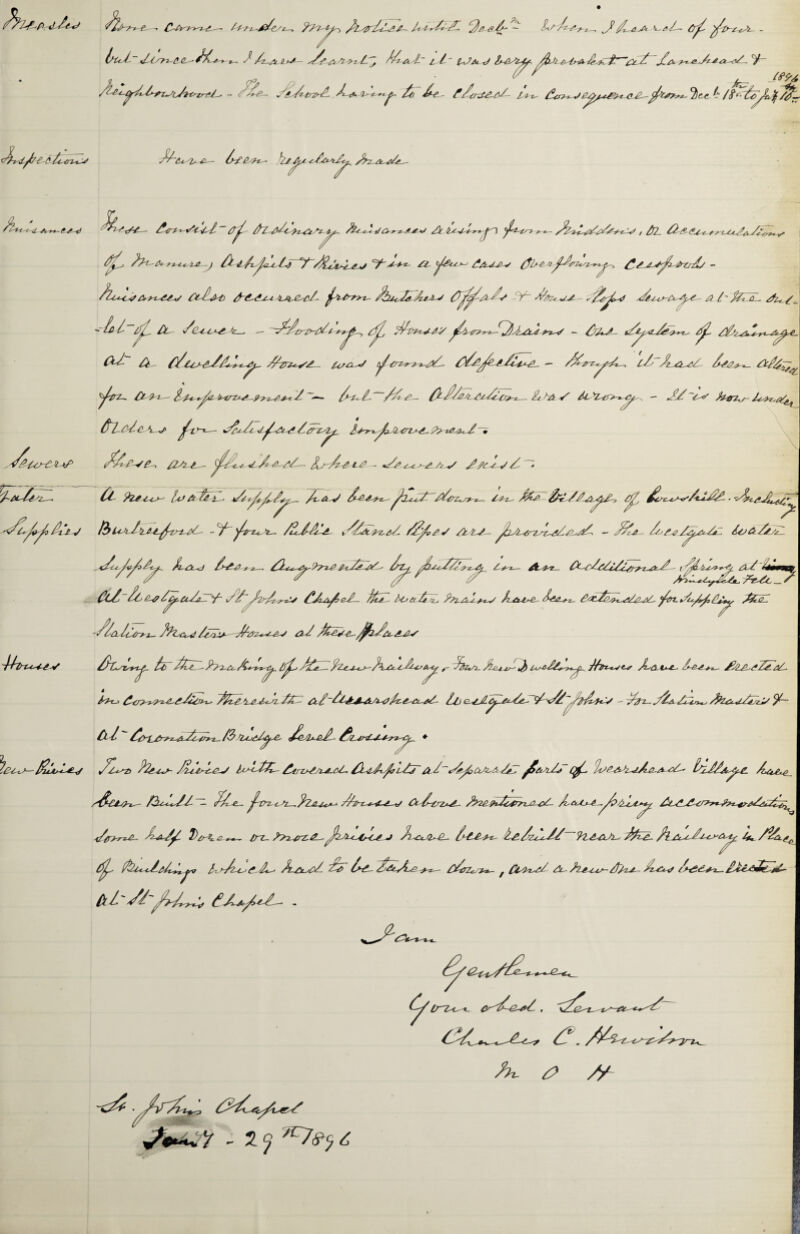 Measles None came under my notice until Decbr. When I heard of four -
but since then I have learnt, that it was very prevalent at Lanehead &
Neighbourhood - The School having to be closed in consequence from Decbr 18th to Jany 10th 1896
Inspections Have been regularly made
Nuisances These consist of ordinary Nuisances arising from Middens, or accumulations
of Manure, Ashpits & Privies & in a few cases Overflowing Cesspools -
Nuisances also occurred from Butchers Offals & House Slops Sewage at the Out-
-let of a Sewer - Flooding of Houses from Drains - One System of drainage
at a dwelling House was found defective - though it had been altered
for an improvement - but the Alteration was wrong - It is now under
Orders for Satisfactory improvement.
Sewers These are flushed where sewers exist.
Water A new water supply has been put down in the Village of Cowshill. Including
Supplies Burtreeford - & four Public Stand Pipes are provided - The Westgate water
supply has been Augmented by putting in an additional Spring at
Windyside Fell -
At Westgate & St John's Chapel the water mains have been extended for supplying the
Station Masters Houses at these places
Houses Owing to the making of the New Railway, Four New Dwelling Houses have been Erected
in connection therewith at Wearshead Westgate & St John's - For Station Masters &
at Coronation Bridge Level Crossing.
New Privies Two New Privies with covered Ashpits at separate parts of Wearshead Village have
been Built - The four New Houses above mentioned have privy accommodation,
some half Dozen or more privies have been rebuilt near the Railway in Place
of Buildings which had to be taken down, and a new one has been Erected
at St John's Chapel -
I am
Gentlemen
Your obed. Servant
Charles C. Hewitson
M O H
St. John's Chapel
Jany - 29th 1896